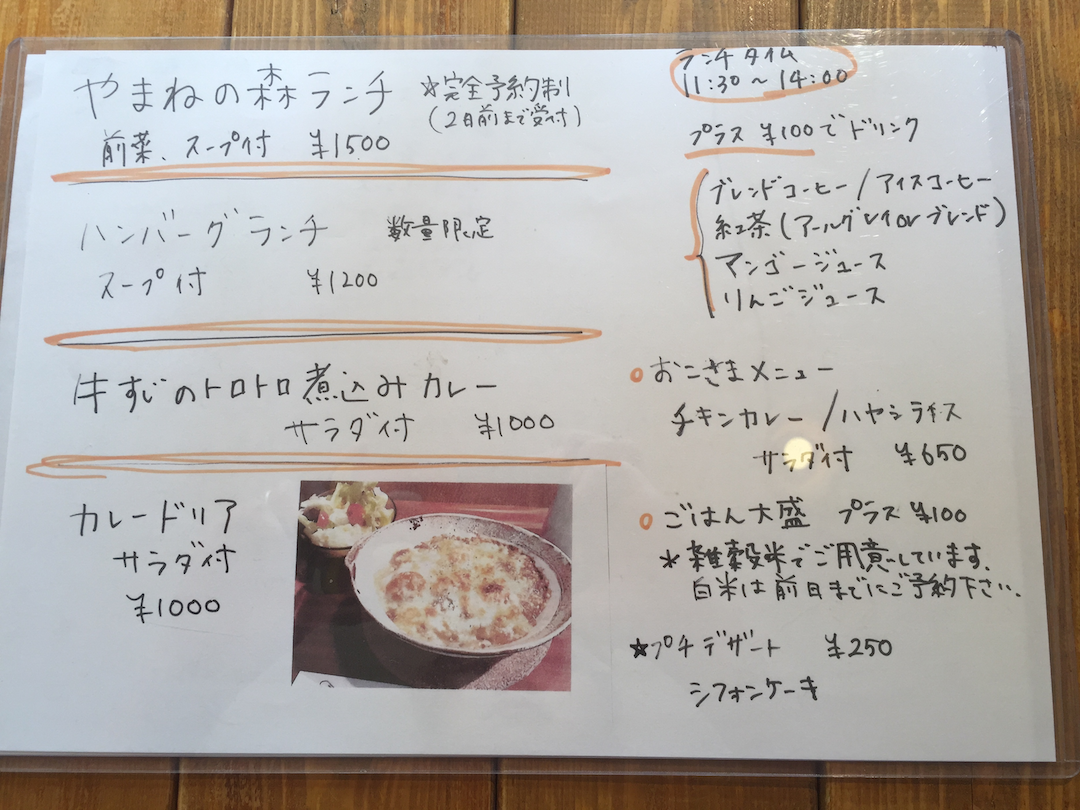 やまねの森ランチ ☆完全予約制
(2日前まで受付)
前菜、スープ付 ¥1500
ハンバーグランチ 数量限定
スープ付 ¥1200
牛すじのトロトロ煮込みカレー
サラダ付 ¥1000
カレードリア
サラダ付
¥1000
ランチタイム
11:30～14:00
プラス ¥100でドリンク
ブレンドコーヒー/アイスコーヒー
紅茶(アールグレイorブレンド)
マンゴージュース
りんごジュース
○おこさまメニュー
チキンカレー/ハヤシライス
サラダ付 ¥650
○ごはん大盛 プラス¥100
*雑穀米でご用意しています。
白米は前日までにご予約下さい。
☆プチデザート ¥250
シフォンケーキ